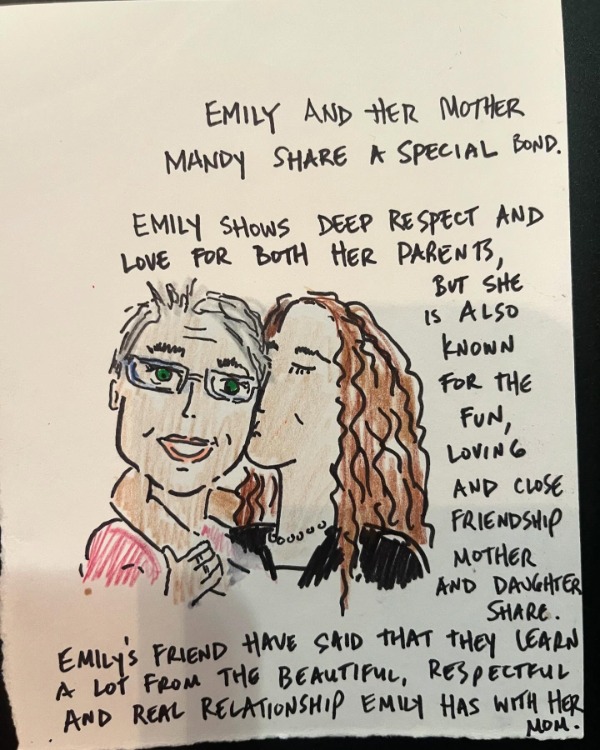 EMILY AND HER MOTHER
MANDY SHARE A SPECIAL BOND.
EMILY SHOWS DEEP RESPECT AND
LOVE FOR BOTH HER PARENTS,
BUT SHE
IS ALSO
KNOWN
FOR THE
FUN,
LOVING
AND CLOSE
FRIENDSHIP
MOTHER
AND DAUGHTER
SHARE.
EMILY'S FRIEND HAVE SAID THAT THEY LEARN
A LOT FROM THE BEAUTIFUL, RESPECTFUL
AND REAL RELATIONSHIP EMILY HAS WITH HER
MOM.